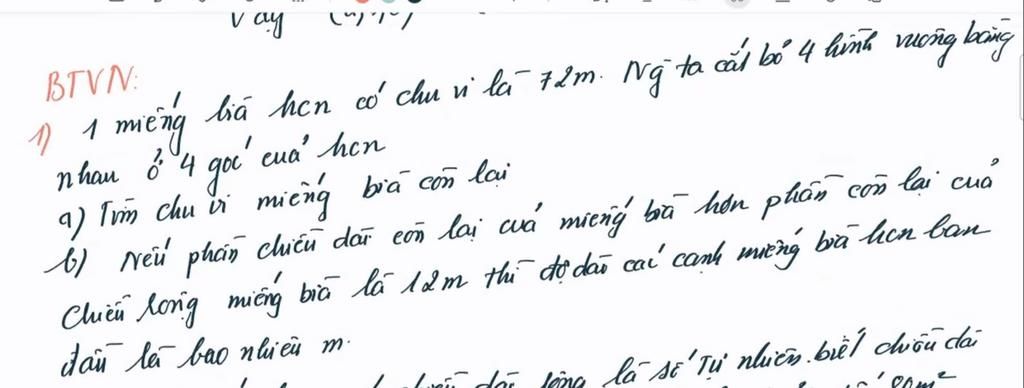 Vậy
BTVN:
1) 1 miếng bìa hcn có chu vi là 72m. Ng ta cắt bỏ 4 hình vuông bằng
nhau ở 4 góc của hcn
a) Tìm chu vi miếng bìa còn lại
b) Nếu phần chiều dài còn lại của miếng bìa hơn phần còn lại của
chiều rộng miếng bìa là 12m thì độ dài các cạnh miếng bìa hcn ban
đầu là bao nhiêu m.
là số tự nhiên. biết chiều dài